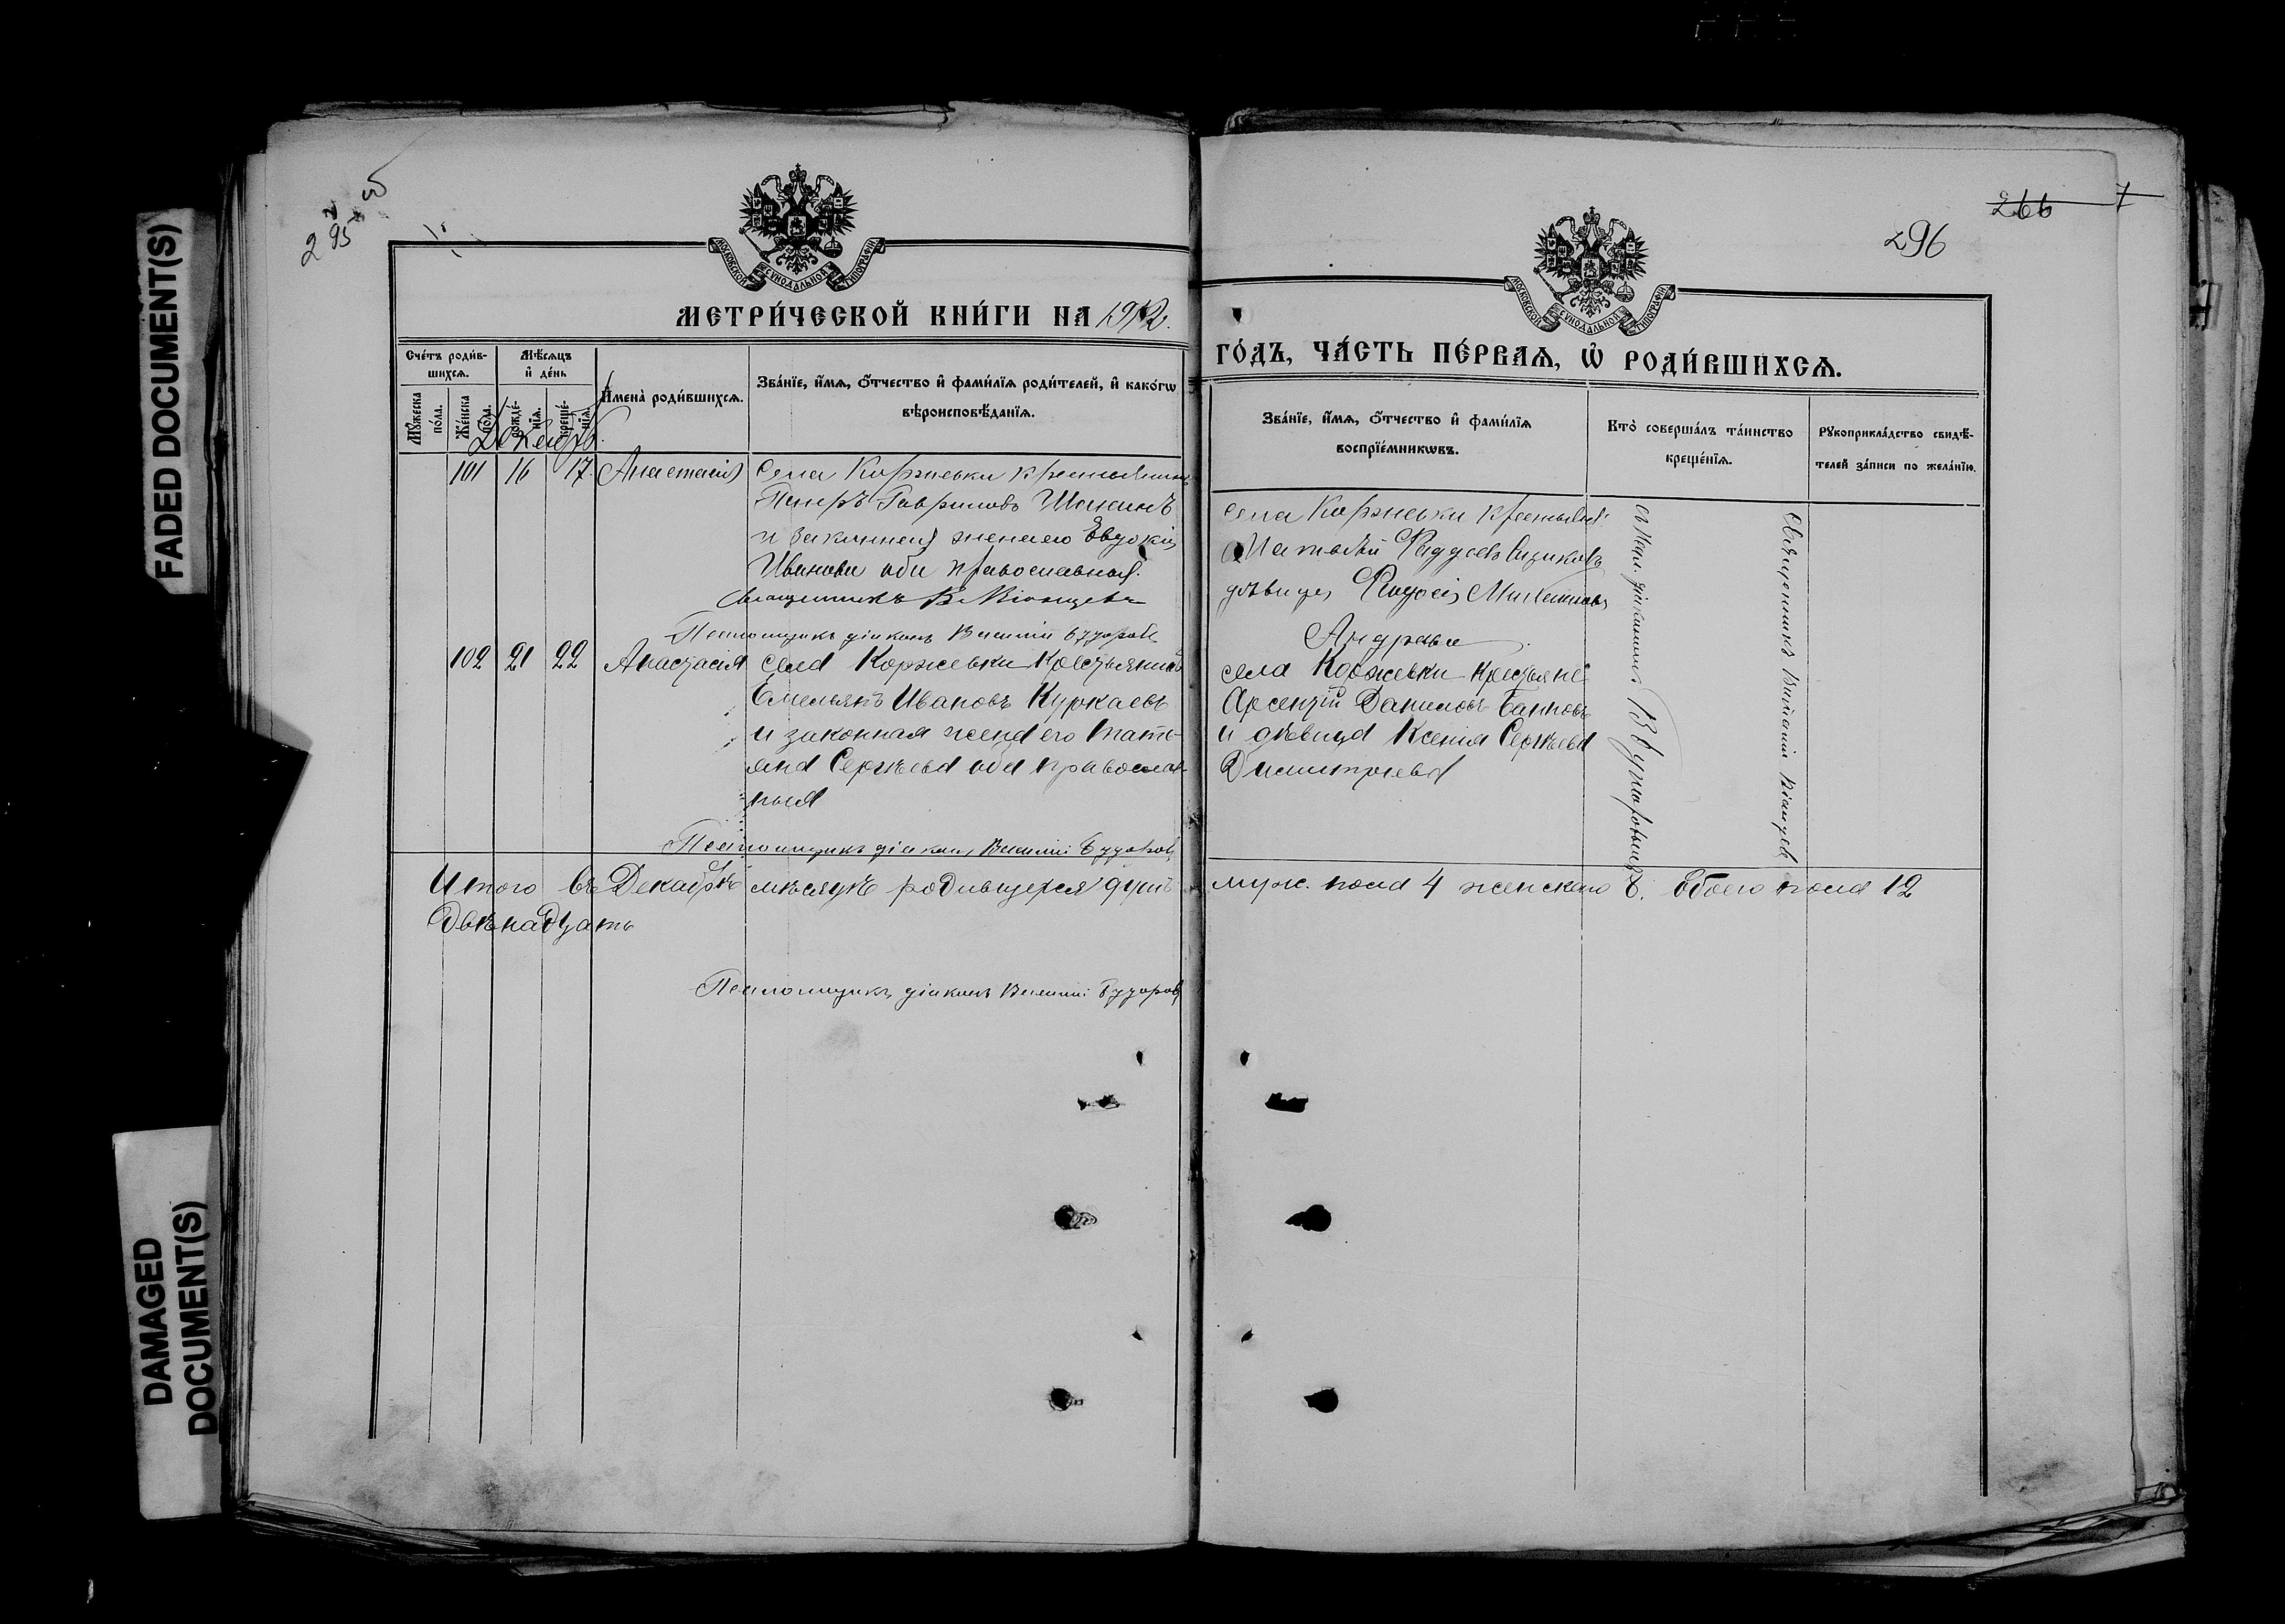 FADED DOCUMENT(S)
DAMAGED DOCUMENT(S)
295
МОСКОВСКОЙ СУНОДАЛЬНОЙ ТИПОГРАФІИ
МЕТРИ́ЧЕСКОЙ КНИ́ГИ НА 1912.
Сче́тъ роди́в-
шихсѧ.
Мѣ́сѧцъ
и҆ де́нь
Мꙋ́жеска по́ла.
Же́нска по́ла.
рожде́-
нїѧ.
креще́-
нїѧ.
И҆мена̀ роди́вшихсѧ.
Зва́нїе, и҆́мѧ, ѻ҆́тчество и҆ фами́лїѧ роди́телей, и҆ како́гѡ
вѣроисповѣ́данїѧ.
Декабрь.
101 16 17. Анастасія Села Коржевки крестьянинъ
Петръ Гавриловъ
и законная жена его Евдокія
Иванова оба православныя.
Священникъ В. Віанцевъ
Псаломщикъ діаконъ Василій Бударовъ
102 21 22 Анастасія села Коржевки Крестьянинъ
Емельянъ Ивановъ Куркаевъ
и законная жена его Тать-
яна Сергѣева оба православ-
ныя
Псаломщикъ діаконъ Василій Бударовъ
Итого въ Декабрѣ мѣсяцѣ родившихся душъ
Двѣнадцать
Псаломщикъ діаконъ Василій Бударовъ
266
296
МОСКОВСКОЙ СУНОДАЛЬНОЙ ТИПОГРАФІИ
ГО́ДЪ, ЧА́СТЬ ПЕ́РВАѦ, Ѽ РОДИ́ВШИХСѦ.
Зва́нїе, и҆́мѧ, ѻ҆́тчество и҆ фами́лїѧ
воспрїе́мникѡвъ.
Кто̀ соверша́лъ та́инство
креще́нїѧ.
Рꙋкоприкла́дство свидѣ́-
телей за́писи по жела́нїю.
села Коржевки крестьяне
Матвѣй
дѣвица
села Коржевки крестьяне
Арсентій Даниловъ Банновъ
и дѣвица Ксенія Сергѣева
Димитріева
Священникъ Виталій Віанцевъ
муж. пола 4 женскаго 8. Обоего пола 12